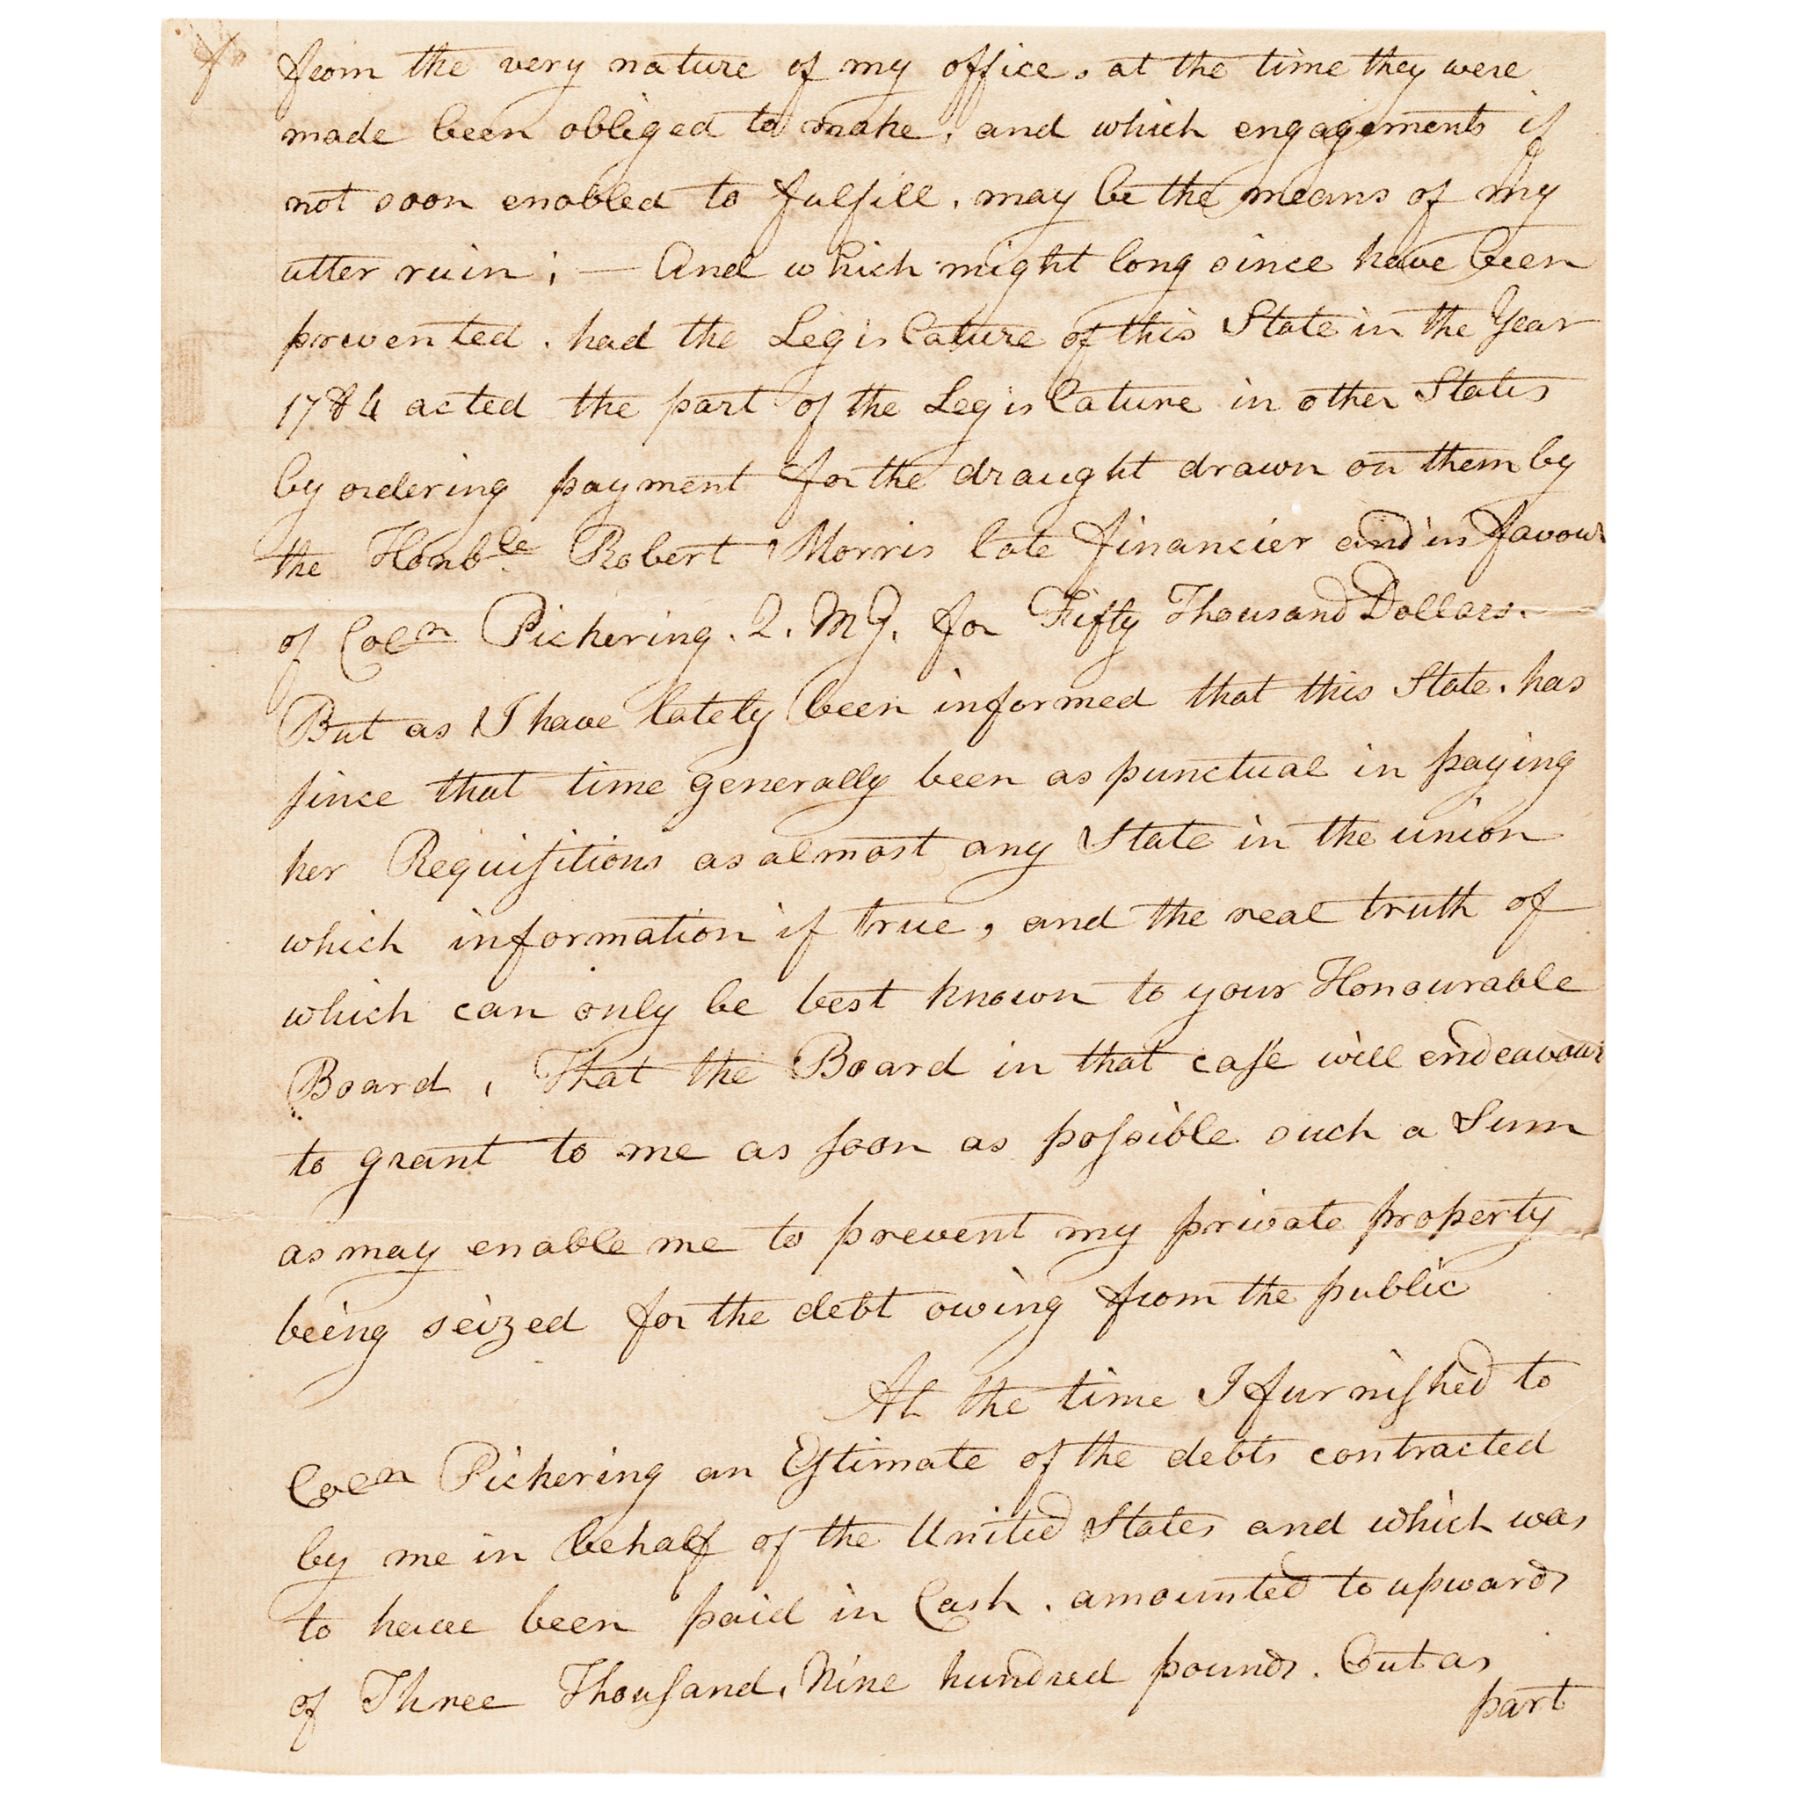 from the very nature of my office, at the time they were
made been obliged to make, and which engagements if
not soon enabled to fulfill, may be the means of my
utter ruin; — And which might long since have been
prevented, had the Legislature of this State in the Year
1784 acted the part of the Legislature in other States
by ordering payment for the draught drawn on them by
the Honble Robert Morris late financier and in favour
of Coln Pickering. Q. M G. for Fifty Thousand Dollars.
But as I have lately been informed that this State, has
since that time generally been as punctual in paying
her Requisitions as almost any State in the union
which information if true, and the real truth of
which can only be best known to your Honourable
Board, That the Board in that case will endeavour
to grant to me as soon as possible such a Sum
as may enable me to prevent my private property
being seized for the debt owing from the public
At the time I furnished to
Coln Pickering an Estimate of the debts contracted
by me in behalf of the United States and which was
to have been paid in Cash, amounted to upwards
of Three Thousand, Nine hundred pounds. But as
part